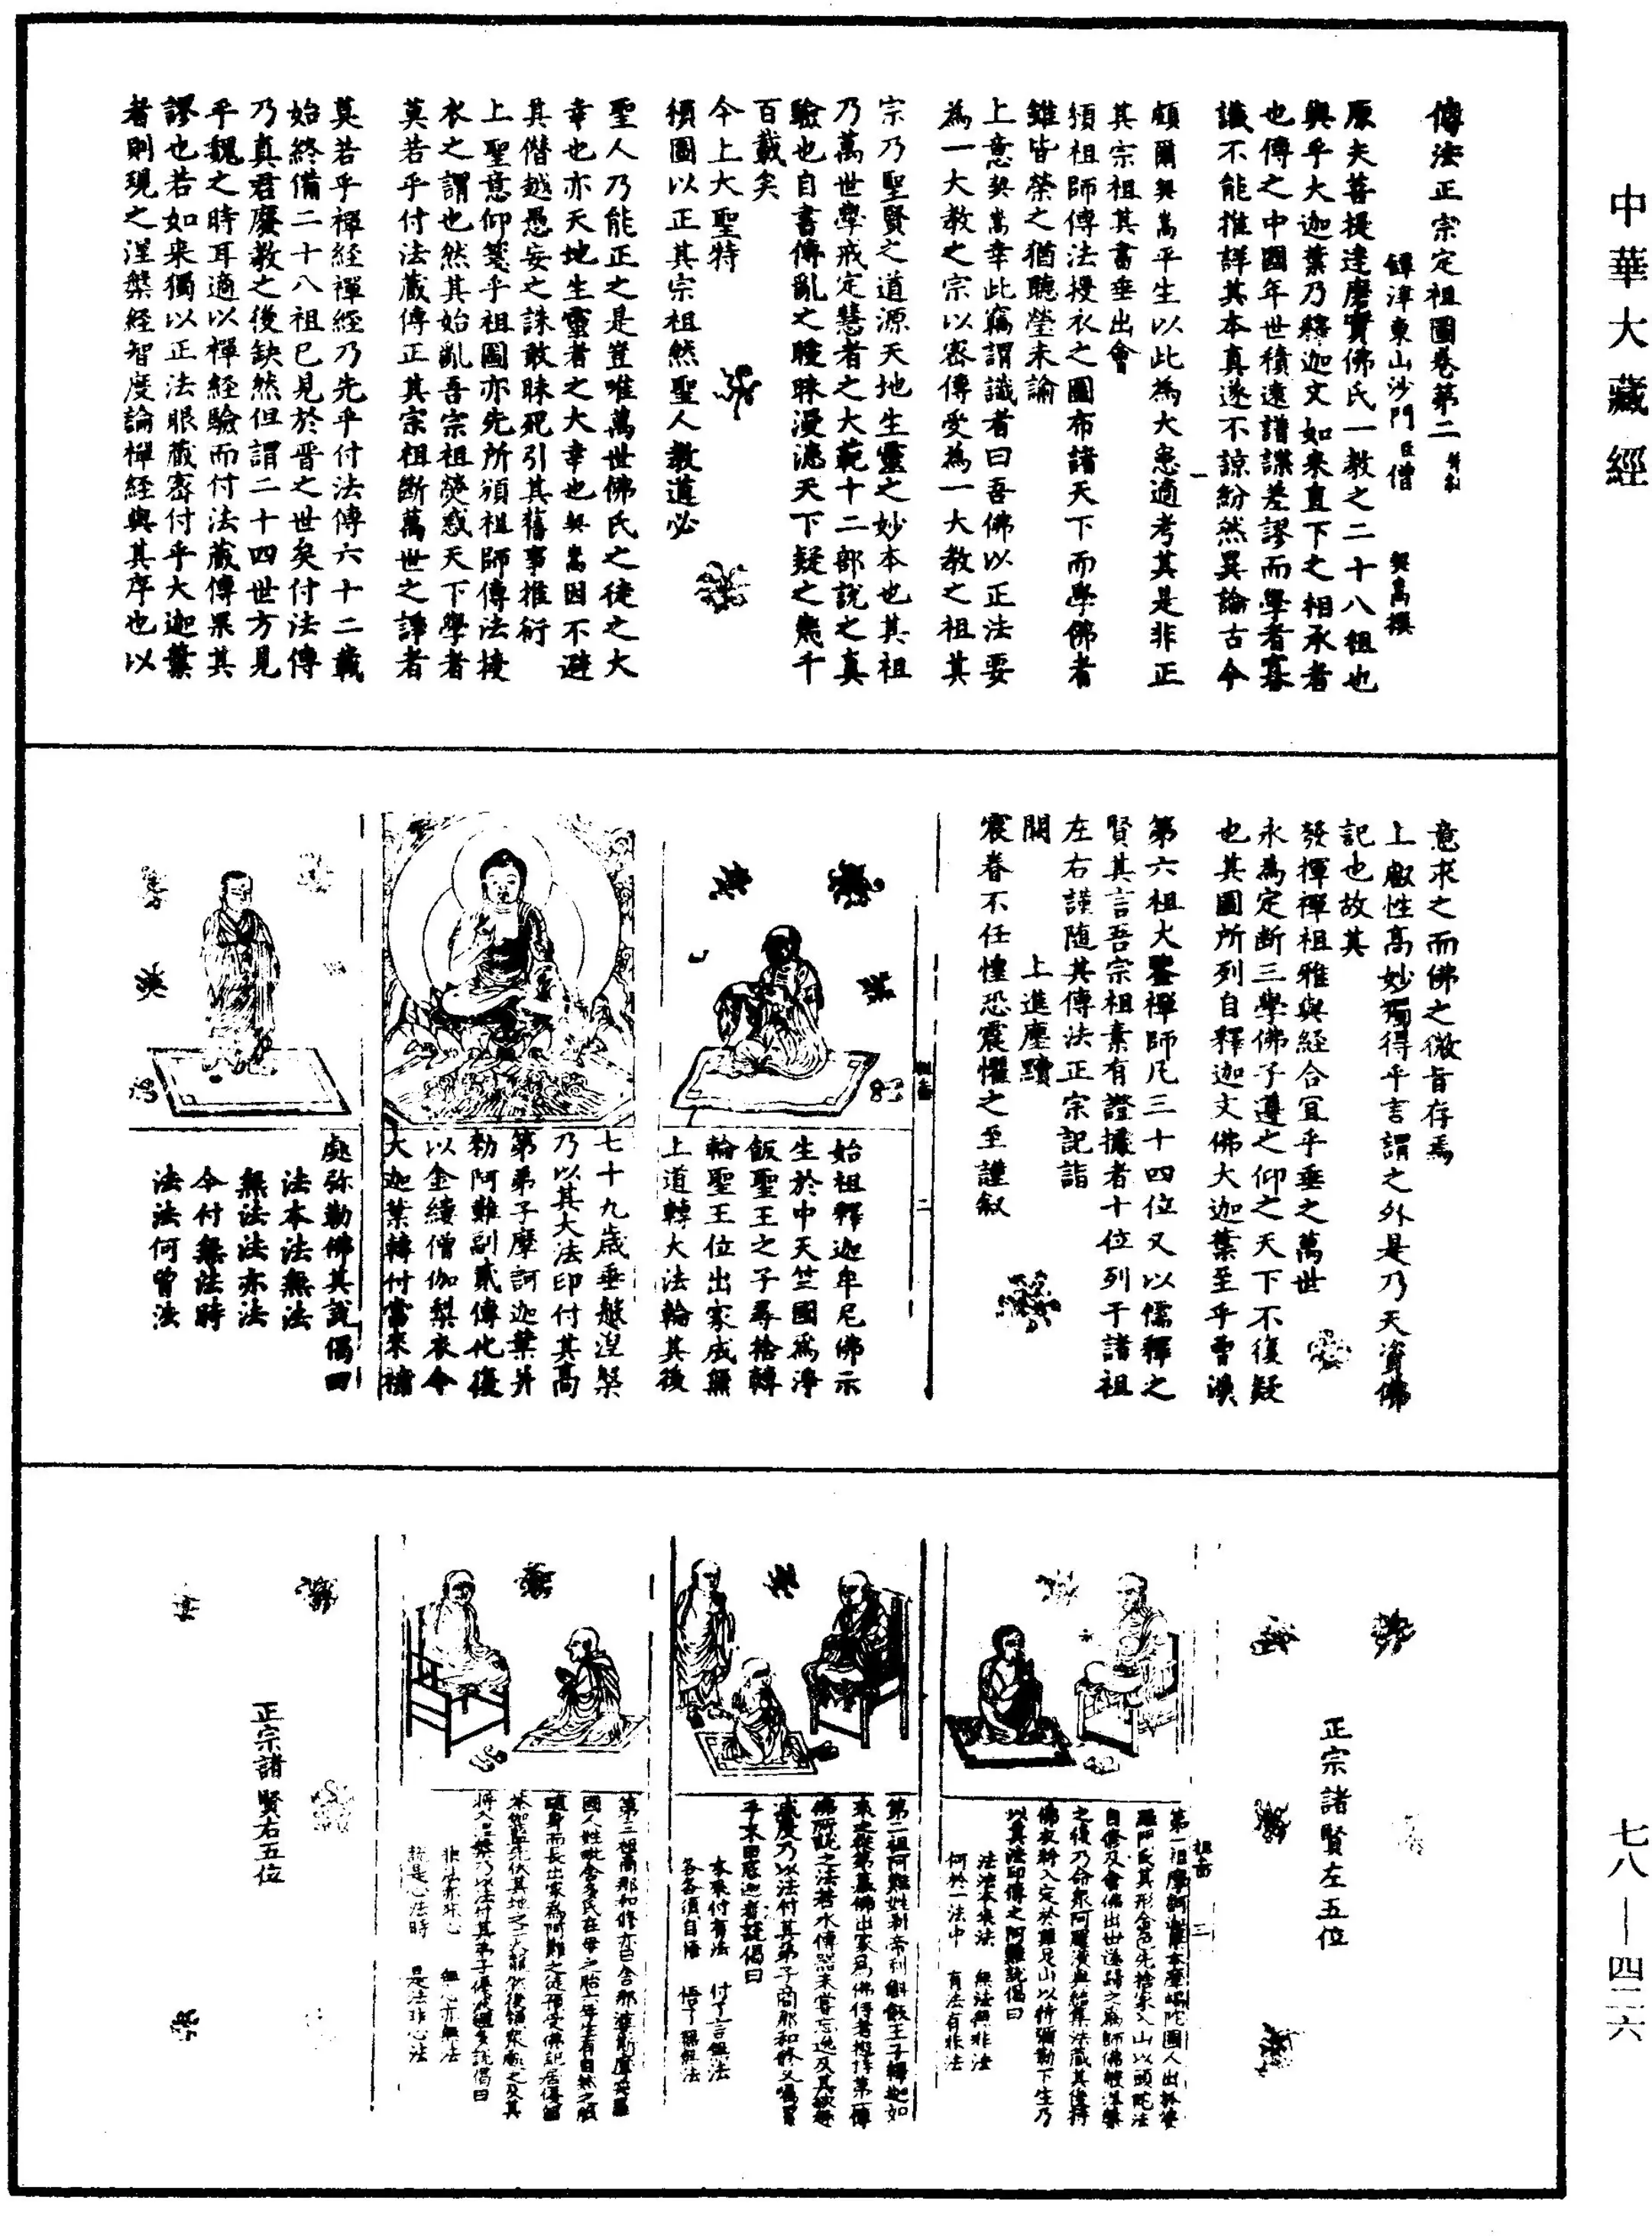 中華大藏經
傳法正宗定祖圖卷第二
鐔津東山沙門臣僧 契嵩撰
原夫菩提達磨實佛氏一教之二十八祖也
與乎大迦葉乃釋迦文如來直下之相承者
也傳之中國年世積遠譜諜差謬而學者寡
識不能推詳其本真遂不諒紛然異論古今
頗爾契嵩平生以此為大患適考其是非正
其宗祖其書垂出會
頒祖師傳法授衣之圖布諸天下而學佛者
雖皆榮之猶聽瑩未諭
上意契嵩幸此竊謂識者曰吾佛以正法要
為一大教之宗以密傳受為一大教之祖其
宗乃聖賢之道源天地生靈之妙本也其祖
乃萬世學戒定慧者之大範十二部說之真
驗也自書傳亂之曖昧漫漶天下疑之幾千
百載矣
今上大聖特
頒圖以正其宗祖然聖人教道必
聖人乃能正之是豈唯萬世佛氏之徒之大
幸也亦天地生靈者之大幸也契嵩因不避
其僭越愚妄之誅敢昧死引其舊事推衍
上聖意仰箋乎祖圖亦先所頒祖師傳法授
衣之謂也然其始亂吾宗祖熒惑天下學者
莫若乎付法藏傳正其宗祖斷萬世之諍者
莫若乎禪經禪經乃先乎付法傳六十二載
始終備二十八祖已見於晉之世矣付法傳
乃真君廢教之後缺然但謂二十四世方見
乎魏之時耳適以禪經驗而付法藏傳果其
謬也若如來獨以正法眼藏密付乎大迦葉
者則現之涅槃經智度論禪經與其序也以
意求之而佛之微旨存焉
上叡性高妙獨得乎言謂之外是乃天資佛
記也故其
發揮禪祖雅與經合宜乎垂之萬世
永為定斷三學佛子遵之仰之天下不復疑
也其圖所列自釋迦文佛大迦葉至乎曹溪
第六祖大鑒禪師凡三十四位又以儒釋之
賢其言吾宗祖素有證據者十位列于諸祖
左右謹隨其傳法正宗記詣
闕 上進塵黷
宸眷不任惶恐震懼之至謹敘
始祖釋迦牟尼佛示
生於中天竺國為淨
飯聖王之子尋捨轉
輪聖王位出家成無
上道轉大法輪其後
七十九歲垂般涅槃
乃以其大法印付其高
第弟子摩訶迦葉并
勑阿難副貳傳化復
以金縷僧伽梨衣令
大迦葉轉付當來補
處弥勒佛其說偈曰
法本法無法
無法法亦法
今付無法時
法法何曾法
正宗諸賢左五位
第一祖摩訶迦葉本摩竭陀國人出於婆
羅門氏其形金色先捨家入山以頭陀法
自修及會佛出世遂歸之為師佛般涅槃
之後乃命眾阿羅漢與結集法藏其後持
佛衣將入定於雞足山以待彌勒下生乃
以其法印傳之阿難說偈曰
法法本來法 無法無非法
何於一法中 有法有非法
第二祖阿難姓剎帝利斛飯王子釋迦如
來之從弟慕佛出家為佛侍者揔持第一傳
佛所說之法若水傳器未嘗忘逸及其欲趣
滅度乃以法付其弟子商那和修又囑累
乎末田底迦者說偈曰
本來付有法 付了言無法
各各須自悟 悟了無無法
正宗諸賢右五位
七八—四二六